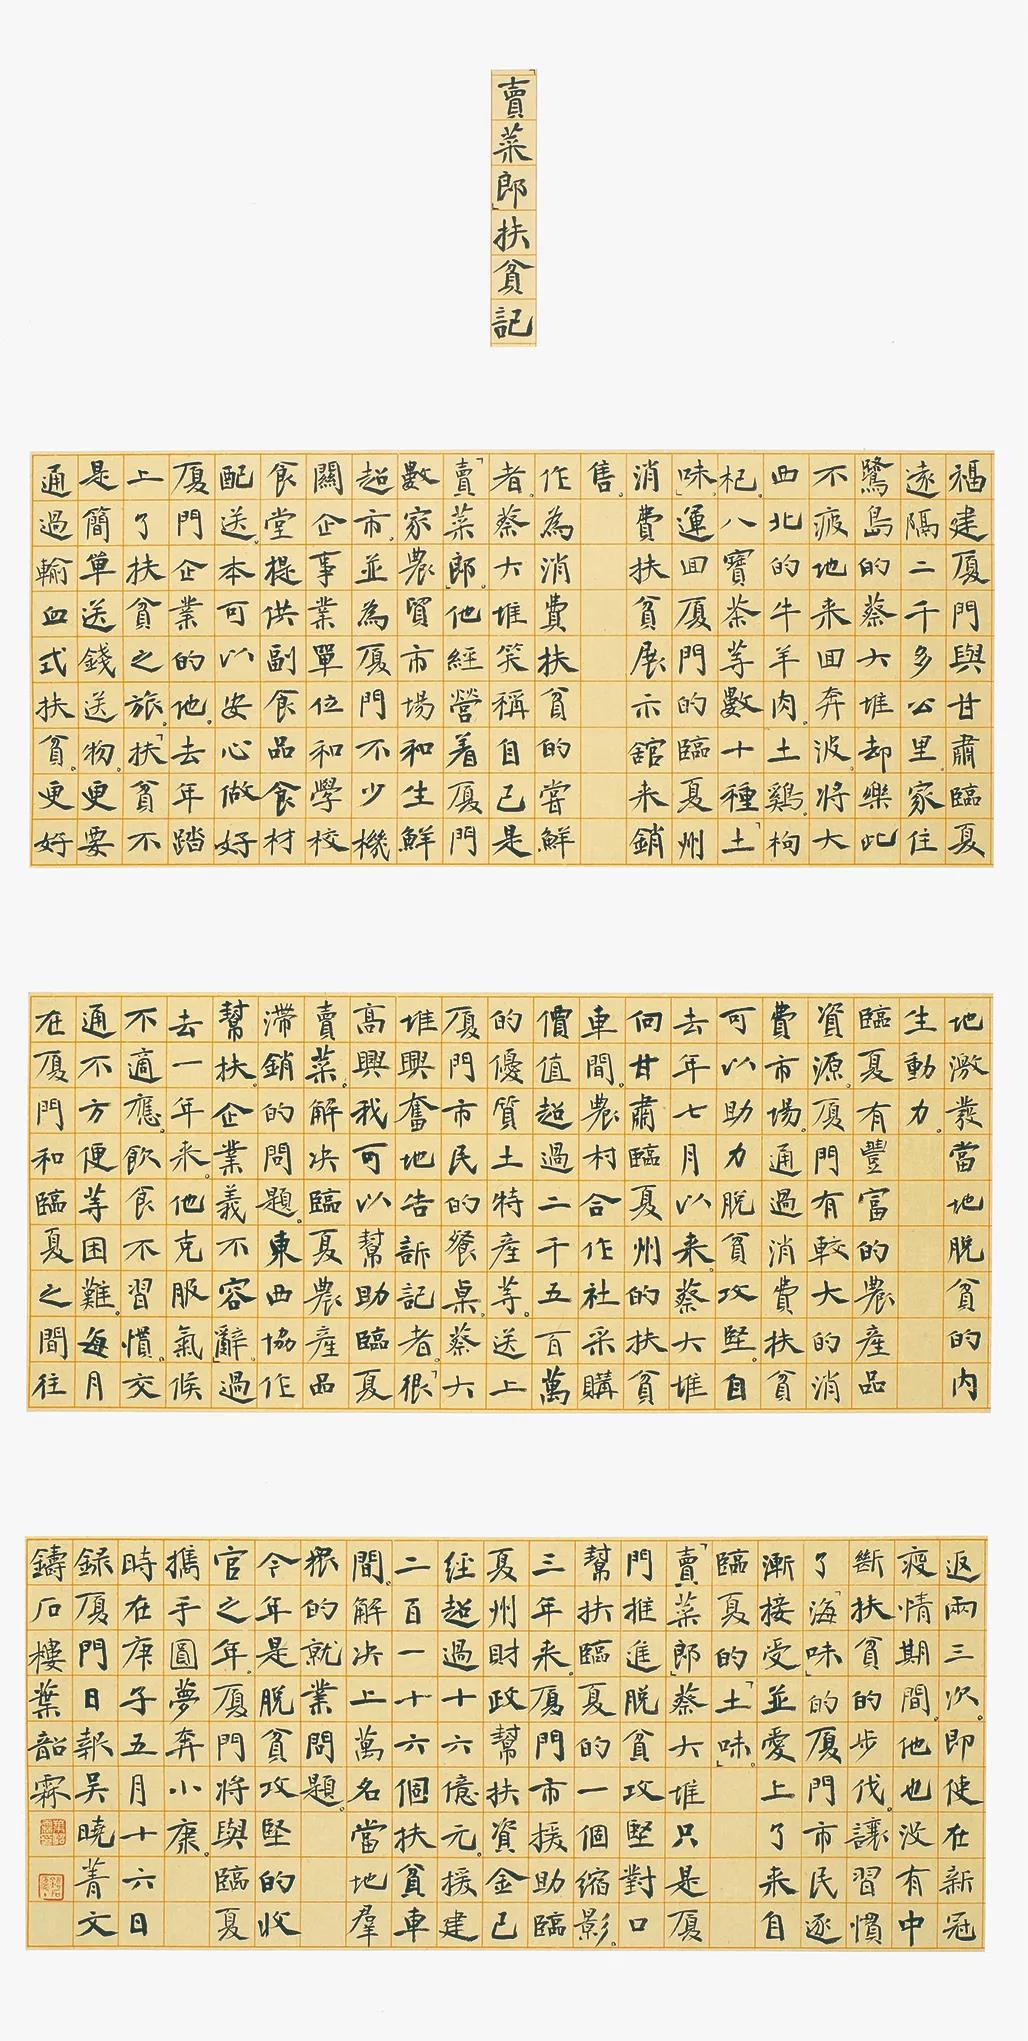 「賣菜郎」扶貧記
福建厦門與甘肅臨夏
遠隔二千多公里。家住
鷺島的蔡大堆却樂此
不疲地来回奔波。將大
西北的牛羊肉土鷄枸
杞八寶茶等數十種「土
味」運回厦門的臨夏州
消費扶貧展示館来銷
售。
作為消費扶貧的嘗鮮
者。蔡大堆笑稱自己是
「賣菜郎」。他經營着厦門
數家農貿市場和生鮮
超市。並為厦門不少機
關企事業單位和學校
食堂提供副食品食材
配送。本可以安心做好
厦門企業的他。去年踏
上了扶貧之旅。「扶貧不
是簡單送錢送物。更要
通過輸血式扶貧。更好
地激發當地脱貧的内
生動力。
臨夏有豐富的農産品
資源。厦門有較大的消
費市場。通過消費扶貧
可以助力脱貧攻堅。自
去年七月以来。蔡大堆
向甘肅臨夏州的扶貧
車間。農村合作社采購
價值超過二千五百萬
的優質土特産等。送上
厦門市民的餐桌。蔡大
堆興奮地告訴記者。「很
高興我可以幫助臨夏
賣菜。解决臨夏農産品
滞銷的問題。東西協作
幫扶。企業義不容辭」。過
去一年来。他克服氣候
不適應。飲食不習慣。交
通不方便等困難。每月
在厦門和臨夏之間往
返兩三次。即使在新冠
疫情期間。他也没有中
斷扶貧的步伐。讓習慣
了「海味」的厦門市民逐
漸接受並愛上了来自
臨夏的「土味」。
「賣菜郎」蔡大堆只是厦
門推進脱貧攻堅對口
幫扶臨夏的一個縮影。
三年来。厦門市援助臨
夏州財政幫扶資金已
經超過十六億元。援建
二百一十六個扶貧車
間。解决上萬名當地羣
衆的就業問題。
今年是脱貧攻堅的收
官之年。厦門將與臨夏
攜手圓夢奔小康。
時在庚子五月十六日
録厦門日報吴曉菁文
鑄石樓葉韶霖